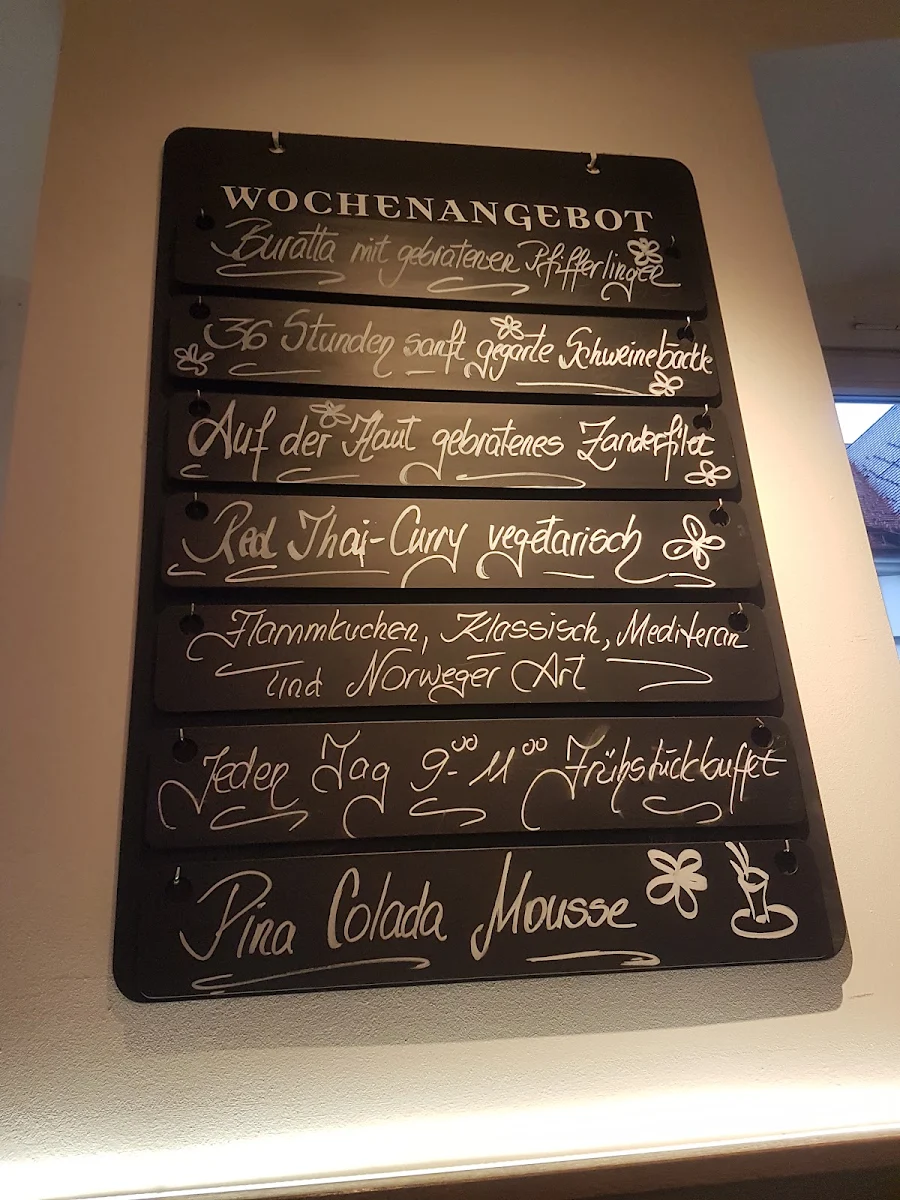 WOCHENANGEBOT
Buratta mit gebratenen Pfifferlingen
36 Stunden sanft gegarte Schweinebäckle
Auf der Haut gebratenes Zanderfilet
Red Thai-Curry vegetarisch
Flammkuchen, Klassisch, Mediteran
und Norweger Art
Jeden Tag 9⁰⁰-11⁰⁰ Frühstückbuffet
Pina Colada Mousse